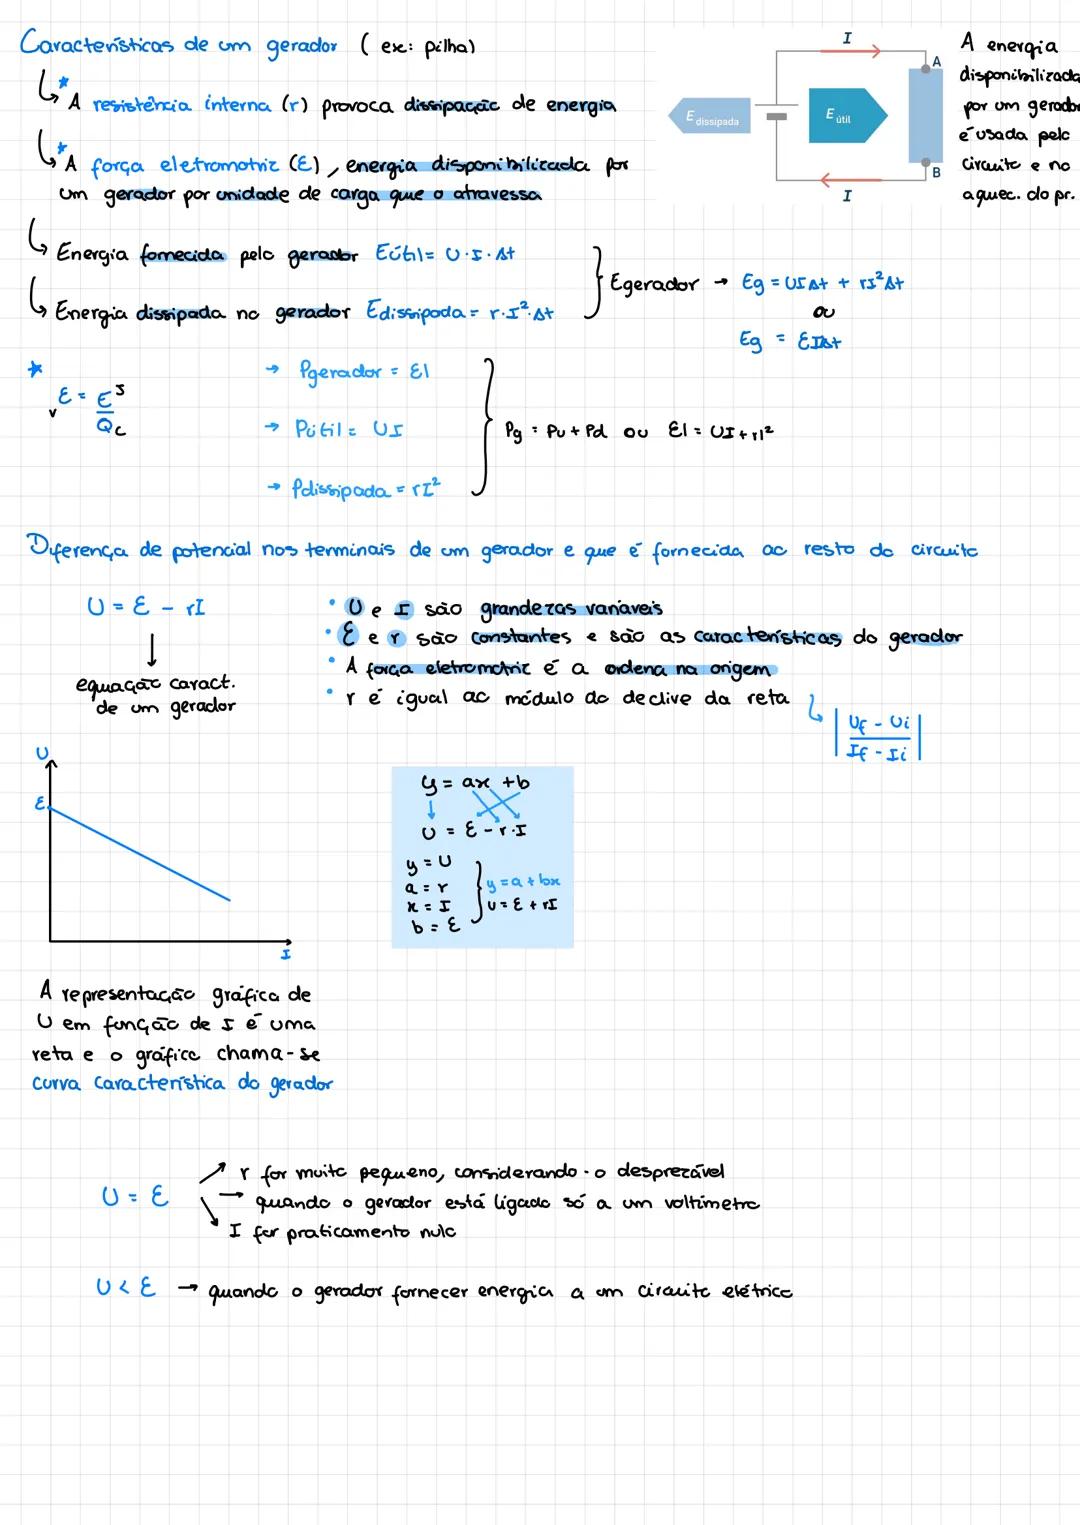 Características de um gerador (ex: pilha)
* A resistência interna (r) provoca dissipação de energia
* A força eletromotriz (Ɛ), energia disponibilizada por
um gerador por unidade de carga que o atravessa
I
A
B
I
E dissipada
E útil
A energia
disponibilizada
por um gerador
é usada pelo
circuito e no
aquec. do pr.
Energia fornecida pelo gerador Eútil = U·I·Δt
Energia dissipada no gerador Edissipada = r·I²·Δt
Egerador → Eg = UIΔt + rI²Δt
ou
Eg = ƐIΔt
*
Ɛ = E J
V
Q C
→ Pgerador = ƐI
→ Pútil = UI
→ Pdissipada = rI²
Pg = Pu + Pd ou ƐI = UI + rI²
Diferença de potencial nos terminais de um gerador e que é fornecida ao resto do circuito
U = Ɛ - rI
↓
equação caract.
de um gerador
• U e I são grandezas variáveis
• Ɛ e r são constantes e são as características do gerador
• A força eletromotriz é a ordena na origem
• r é igual ao módulo do declive da reta
|Uf - Ui|
|If - Ii|
U
Ɛ
I
y = ax + b
U = Ɛ - r·I
y = U
a = r
x = I
b = Ɛ
y = a + bx
U = Ɛ + rI
A representação gráfica de
U em função de I é uma
reta e o gráfico chama-se
curva característica do gerador
U = Ɛ
r for muito pequeno, considerando-o desprezável
→ quando o gerador está ligado só a um voltímetro
I for praticamento nulo
U < Ɛ → quando o gerador fornecer energia a um circuito elétrico